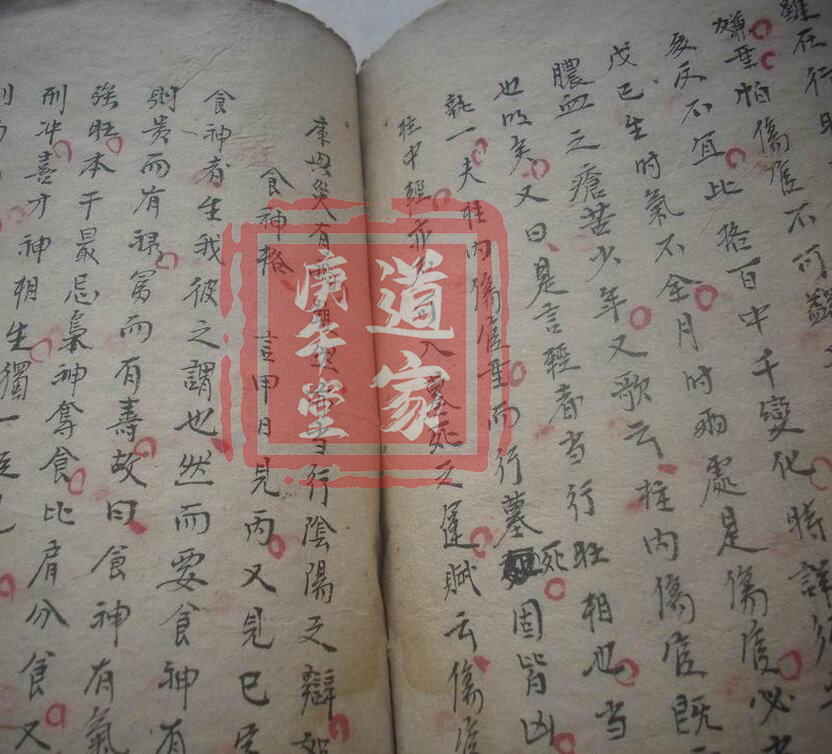 雖在行旺
嫌重怕傷官不可
亥反不宜比格百中千變化時詳須
戊巳生時氣不全月時兩處是傷官必
膿血之瘡苦少年又歌云柱內傷官既
也明矣又曰是言輕者当行旺相也当
執一夫柱內傷官重而行墓死固皆凶
柱中輕亦入墓死之運賦云傷官
行陰陽之辯如
食神格 言甲日見丙又見巳宮
食神者生我彼之謂也然而要食神有
則贵而有禄富而有壽故曰食神有氣
強旺本干最忌梟神奪食比肩分食又
刑冲喜才神相生獨一位
道家
庚壬堂